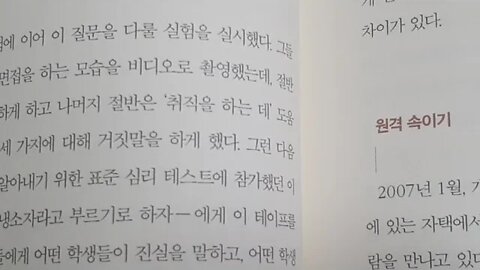 에 이어 이 질문을 다룰 실험을 실시했다. 그들
면접을 하는 모습을 비디오로 촬영했는데, 절반
하게 하고 나머지 절반은 ‘취직을 하는 데’ 도움
세 가지에 대해 거짓말을 하게 했다. 그런 다음
알아내기 위한 표준 심리 테스트에 참가했던 이
냉소자라고 부르기로 하자—에게 이 테이프를
들에게 어떤 학생들이 진실을 말하고, 어떤 학생
차이가 있다.
원격 속이기
2007년 1월,
에 있는 자택에서
람을 만나고 있다